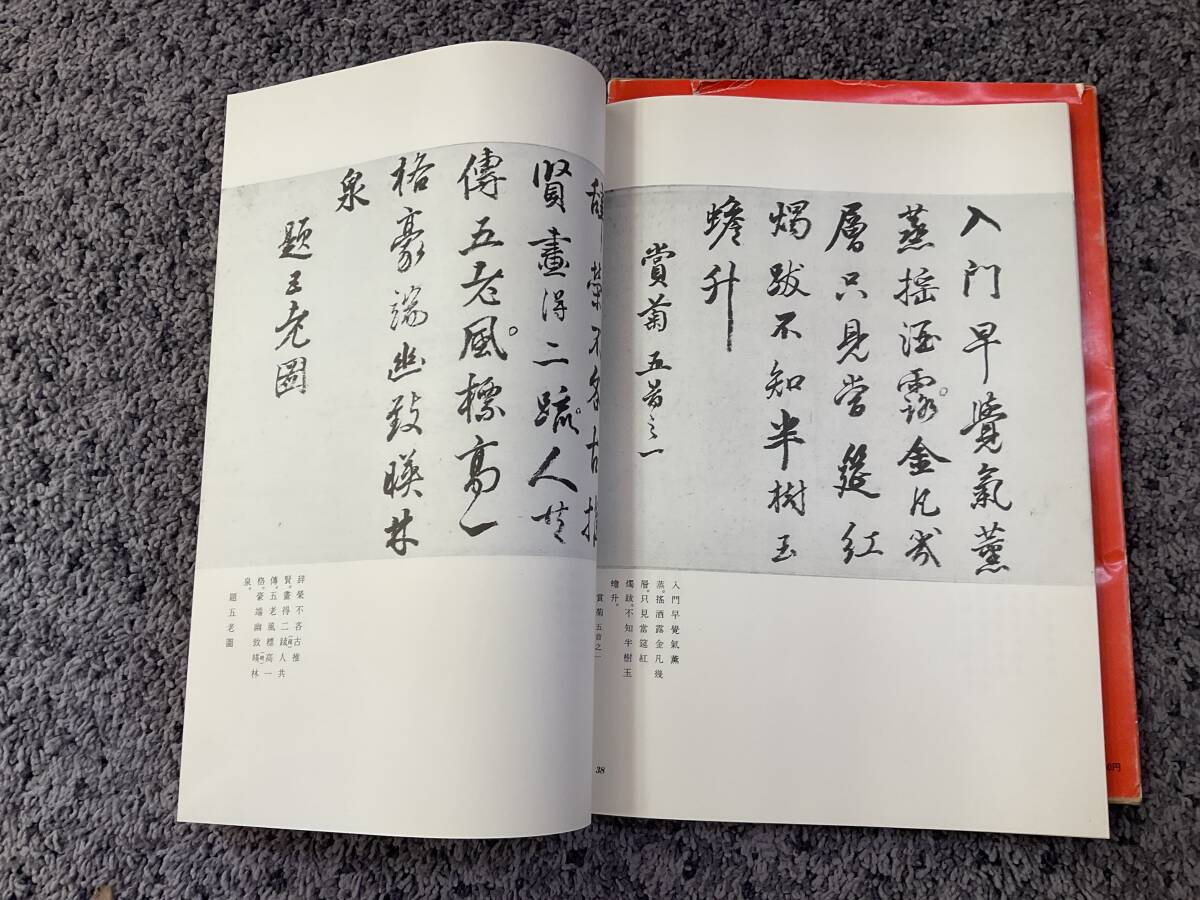 入门早覺氣薰
蒸搖洒露。金凡幾
層只見當筵紅
燭跋不知半樹玉
蟾升
賞菊五首之一
入門早覺氣薰
蒸。搖洒露金凡幾
層。只見當筵紅
燭跋。不知半樹玉
蟾升。
賞菊五首之一
榮不吝古推
賢畫得二疏。人共
傳五老風。標高一
格豪端幽致暎林
泉
題五老圖
辞榮不吝古推
賢。畫得二䟽人共
傳。五老風標高一
格。豪端幽致暎林
泉。
題五老圖
38
0円